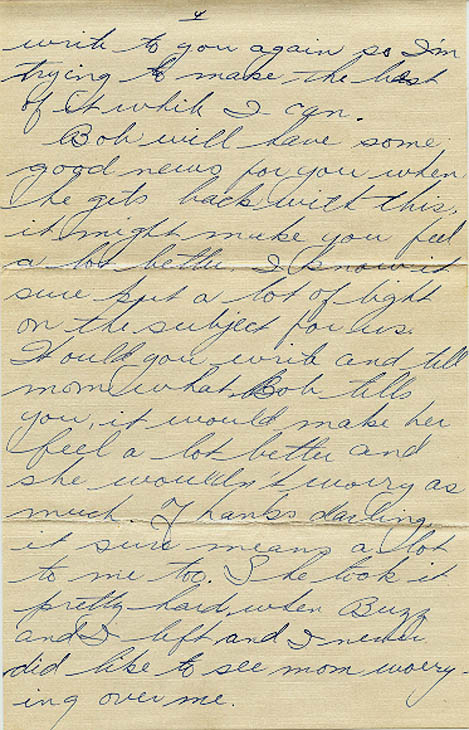 4
write to you again so I'm
trying to make the best
of it while I can.
Bob will have some
good news for you when
he gets back with this,
it might make you feel
a lot better. I know it
sure put a lot of light
on the subject for us.
Would you write and tell
mom what Bob tells
you, it would make her
feel a lot better and
she wouldn't worry as
much. Thanks darling,
it sure means a lot
to me too. She took it
pretty hard when Buzz
and I left and I never
did like to see mom worry-
ing over me.